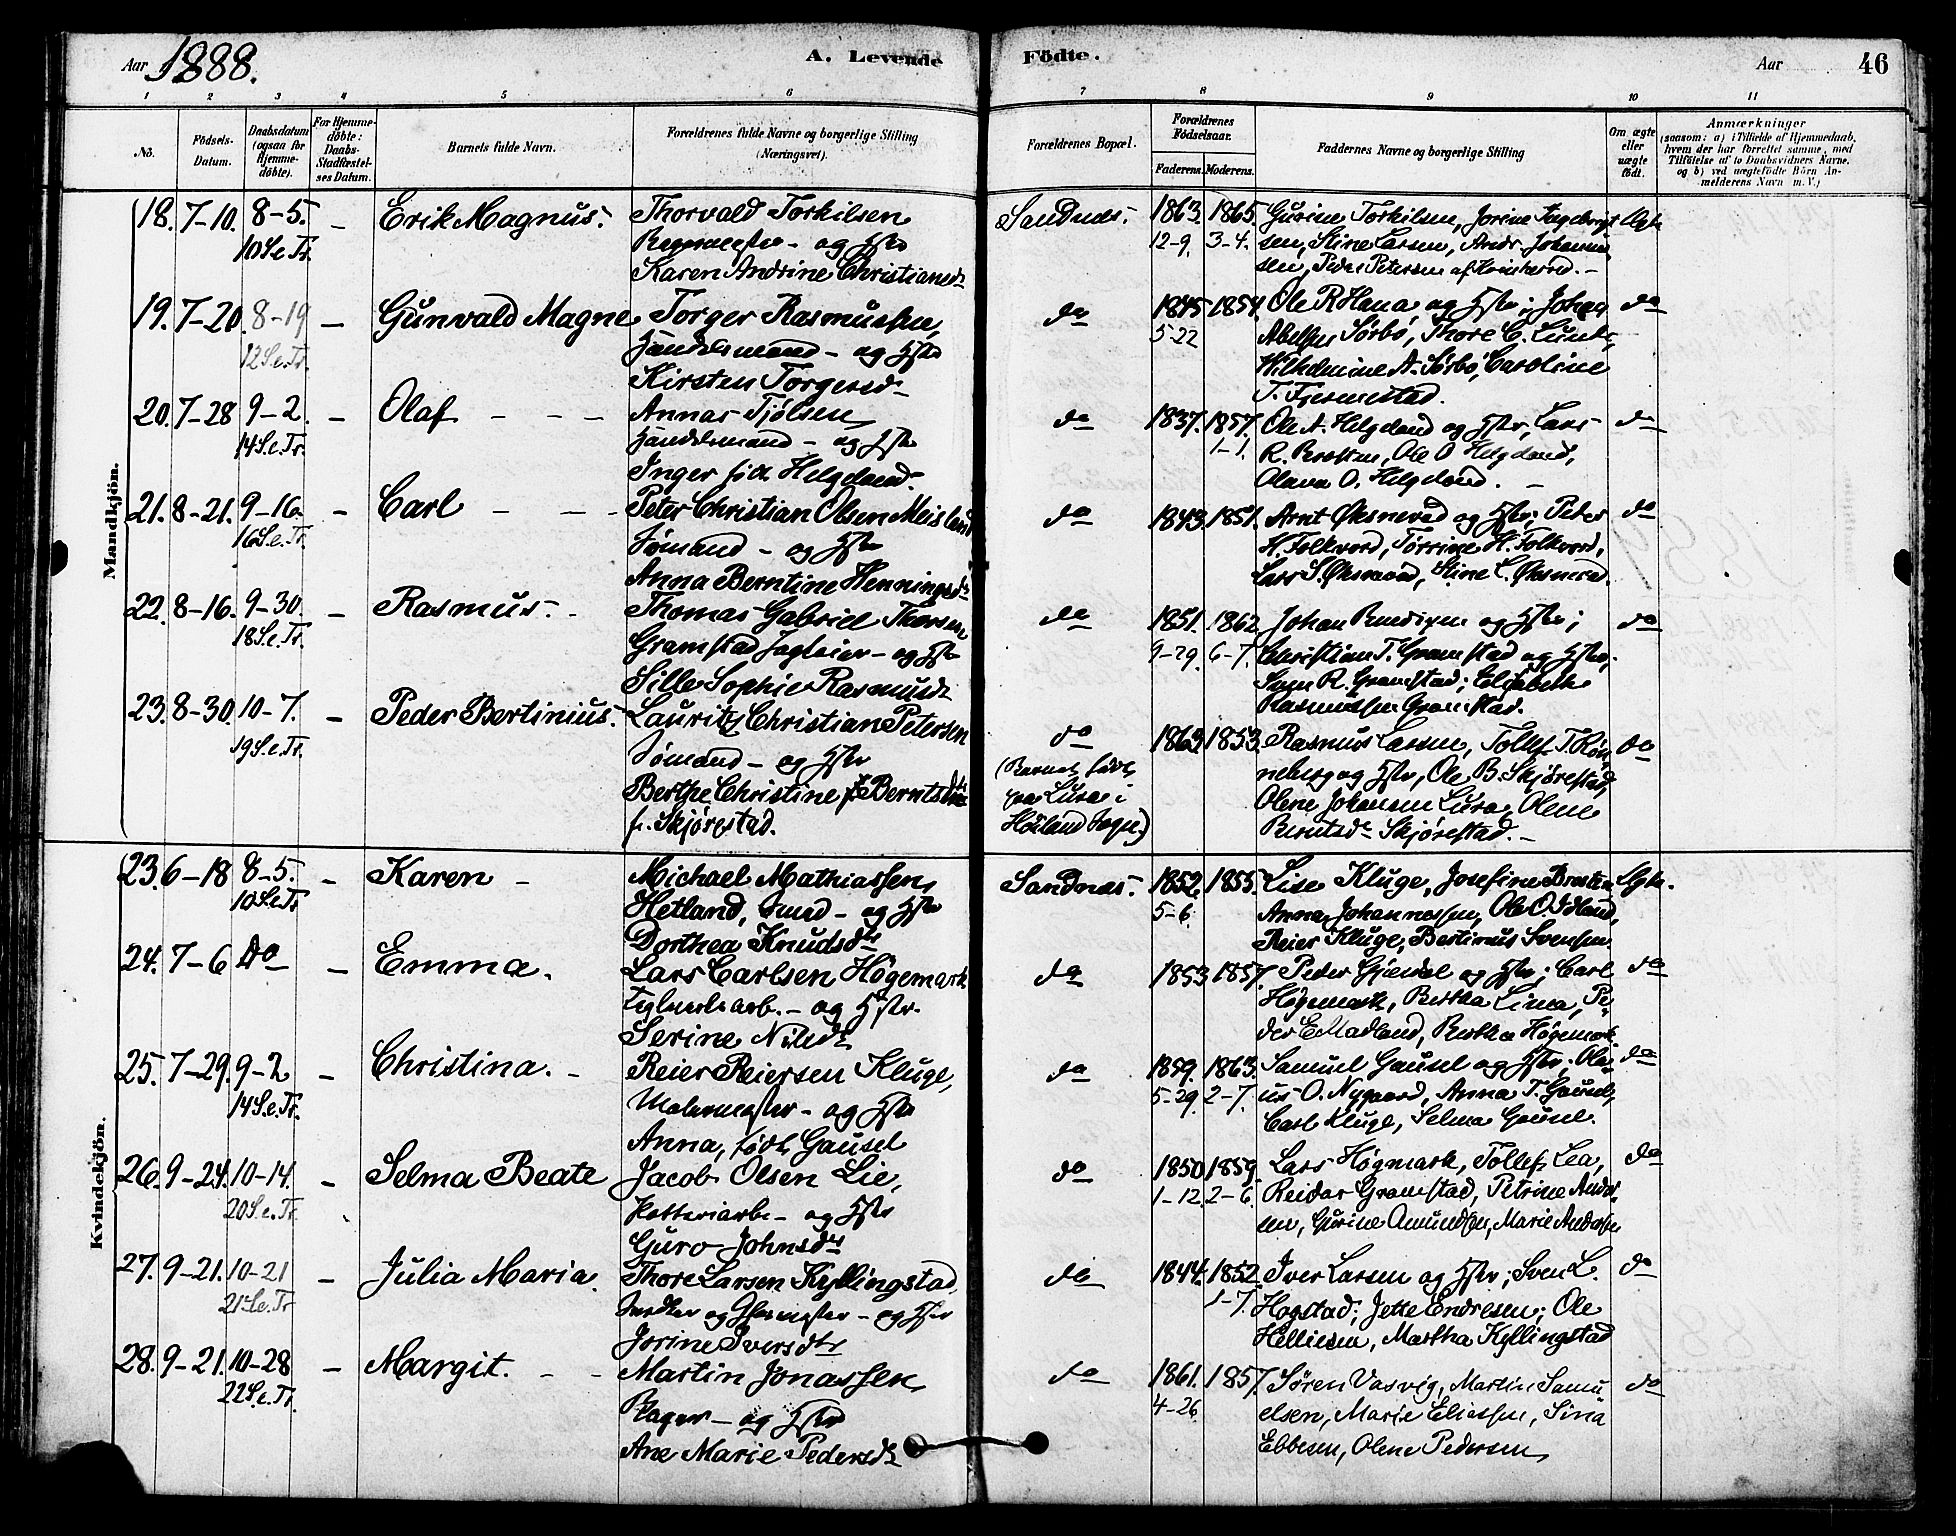 Aar 1888.
A. Levende Födte.
Aar
46
1 2 3 4 5 6 7 8 9 10 11
No.
Födsels-
Datum.
Daabsdatum
(ogsaa for
Hjemme-
döbte).
For Hjemme-
döbte:
Daabs-
Stadfæstel-
ses Datum.
Barnets fulde Navn.
Forældrenes fulde Navne og borgerlige Stilling
(Næringsvei).
Forældrenes Bopæl.
Forældrenes
Födselsaar.
Faderens. Moderens.
Faddernes Navne og borgerlige Stilling
Om ægte
eller
uægte
födt.
Anmærkninger
(saasom: a) i Tilfælde af Hjemmedaab,
hvem der har forrettet samme, med
Tilföielse af to Daabsvidners Navne,
og b) ved uægtefödte Börn An-
melderens Navn m. V.)
Mandkjön.
18. 7-10. 8-5. - Erik Magnus. Thorvald Torkilsen Sandnes. 1863. 1865. Gurine Torkilsen, Jorine Ingebrigt Ægte
10 S.e.Tr. og Hstr 12-9. 3-4. sen, Stine Larsen, Andr. Johann
Karen Andrine Christiansdr sen, Peder Petersen af
19. 7-20. 8-19 - Gunvald Magne Torger Rasmussen, do 1845 1854. Ole R Hana, og Hstr; Johan do
12 S.e.Tr. Handelsmand - og Hstr 5-22 Abelsen Sörbö, Thore C. Lunde,
Kirsten Torgersdr Wilhelmine A. Sörbö, Caroline
T. Fjermestad.
20. 7-28 9-2. - Olaf - - - Annas Tjölsen, do 1837. 1857. Ole A. Helgeland og Hstr, Lars do
14 S.e.Tr. Handelsmand - og Hstr 1-1. R. Ole O Helgeland,
Inger född Helgeland. Olava O. Helgeland. -
21. 8-21. 9-16. - Carl - - - Peter Christian Olsen Meisland do 1843. 1851. Arnt Öksnevad og Hstr; Peder do
16 S.e.Tr. Sömand - og Hstr H. Folkvord, Törrine H. Folkvord,
Anna Berntine Henningsdr Lars S. Öksnevad, Stine L. Öksnevad.
22. 8-16. 9-30. - Rasmus. - Thomas Gabriel Thorsen do 1851. 1862. Johan og Hstr; do
18 S.e.Tr. Gramstad og Hstr 9-29. 6-7. Christian T. Gramstad og Hstr,
Sille Sophie Rasmusdr Sven R. Gramstad; Elisabeth
Rasmussen Gramstad.
23. 8-30. 10-7. - Peder Bertinius. Lauritz Christian Petersen do 1863. 1853. Rasmus Larsen, Tollef T. Rön- do
19 S.e.Tr. Sömand - og Hstr (Barnet födt neberg og Hstr, Ole B. Skjörestad,
Berthe Christine Berntsdtr paa Lura i Olene Johansen Lura, Olene
f. Skjörestad. Höiland Sogn.) Berntsdr Skjörestad. -
Kvindekjön.
23. 6-18 8-5. - Karen - Michael Mathiassen Sandnes. 1852. 1855. Lise Kluge, Josefine Ægte.
10 S.e.Tr Hetland, Smed - og Hstr 5-6. Anna Johannessen, Ole O. Idland,
Dorthea Knudsdtr Reier Kluge, Bertinus Svensen
24. 7-6 do - Emma. Lars Carlsen Högemark do 1853 1857. Peder Gjesdal og Hstr; Carl do
Teglverksarb. - og Hstr. Högemark, Bertha Lima, Pe-
Serine Nilsdr der E Madland, Bertha Högemark
25. 7-29. 9-2 - Christina. - Reier Reiersen Kluge, do 1859. 1863. Samuel Gausel og Hstr. Ola- do
14 S.e.Tr. Malermester - og Hstr 5-29. 2-7. us O. Nygaard, Anna T. Gausel,
Anna, född Gausel Carl Kluge, Selma Gausel.
26. 9-24. 10-14. - Selma Beate Jacob Olsen Lie, do 1850 1859. Lars Högmark, Tollef Lea, do
20 S.e.Tr. Potteriarb. - og Hstr 1-12. 2-6. Reidar Gramstad, Petrine Ander-
Guro Johnsdtr sen, Gurine Amundsen, Marie Andersen
27. 9-21. 10-21 - Julia Maria. Thore Larsen Kyllingstad do 1844. 1852. Iver Larsen og Hstr; Sven L. do
21 S.e.Tr Snedker og og Hstr 1-7. Hogstad; Jette Endresen; Ole
Jorine Iversdtr Helliesen, Martha Kyllingstad
28. 9-21. 10-28 - Margit. - - Martin Jonassen, do 1861. 1857. Sören Vasvig, Martin Samu- do
22 S.e.Tr. Bager - og Hstr 4-26. elsen, Marie Eliassen, Sina
Ane Marie Pedersdr Ebbesen, Olene Pedersen,